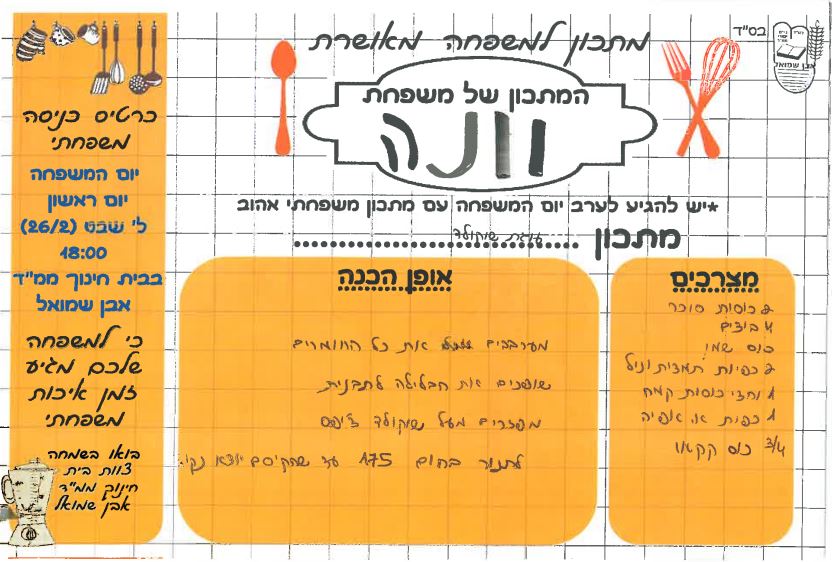 בס"ד
אבן שמואל
מתכון למשפחה מאושרת
המתכון של משפחת
וונה
*יש להגיע לערב יום המשפחה עם מתכון משפחתי אהוב
מתכון עוגת שוקולד
מצרכים
2 כוסות סוכר
4 ביצים
כוס שמן
2 כפיות תמצית וניל
1 וחצי כוסות קמח
1 כפית או אפיה
3/4 כוס קקאו
אופן הכנה
מערבבים את כל החומרים
שופכים את הבלילה לתבנית
מפזרים מעל שוקולד צ'יפס
לתנור בחום 175 עד שהקיסם יוצא נקי.
כרטיס כניסה
משפחתי
יום המשפחה
יום ראשון
ל' שבט (26/2)
18:00
בבית חינוך ממ"ד
אבן שמואל
כי למשפחה
שלכם מגיע
זמן איכות
משפחתי
בואו בשמחה
צוות בית
חינוך ממ"ד
אבן שמואל